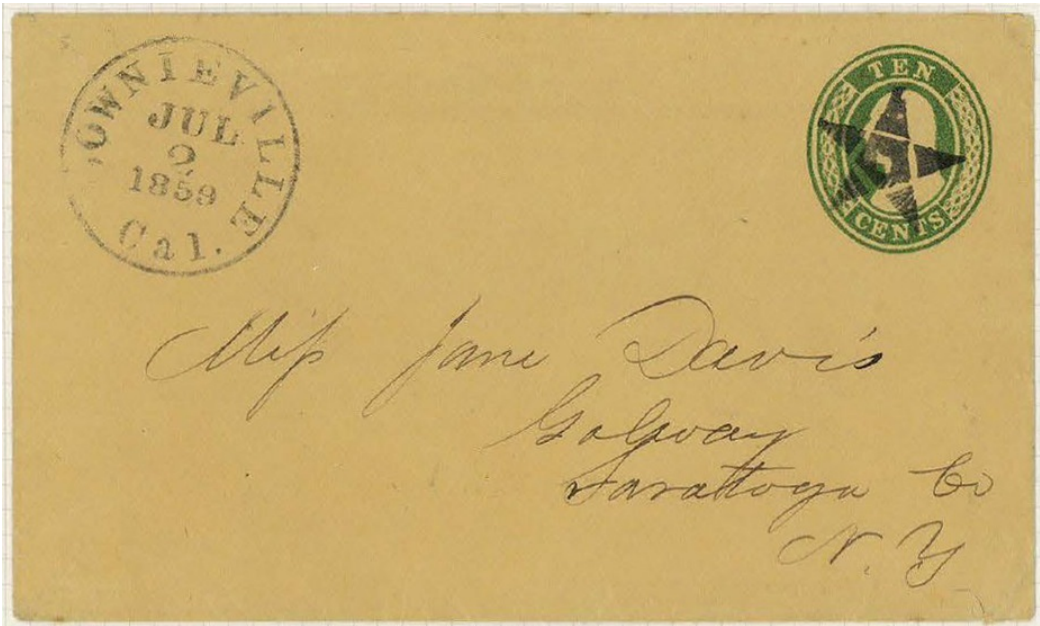 OWNIEVILLE
JUL
2
1859
Cal.
TEN
CENTS
Miss Jane Davis
Galway
Saratoga Co
N.Y.